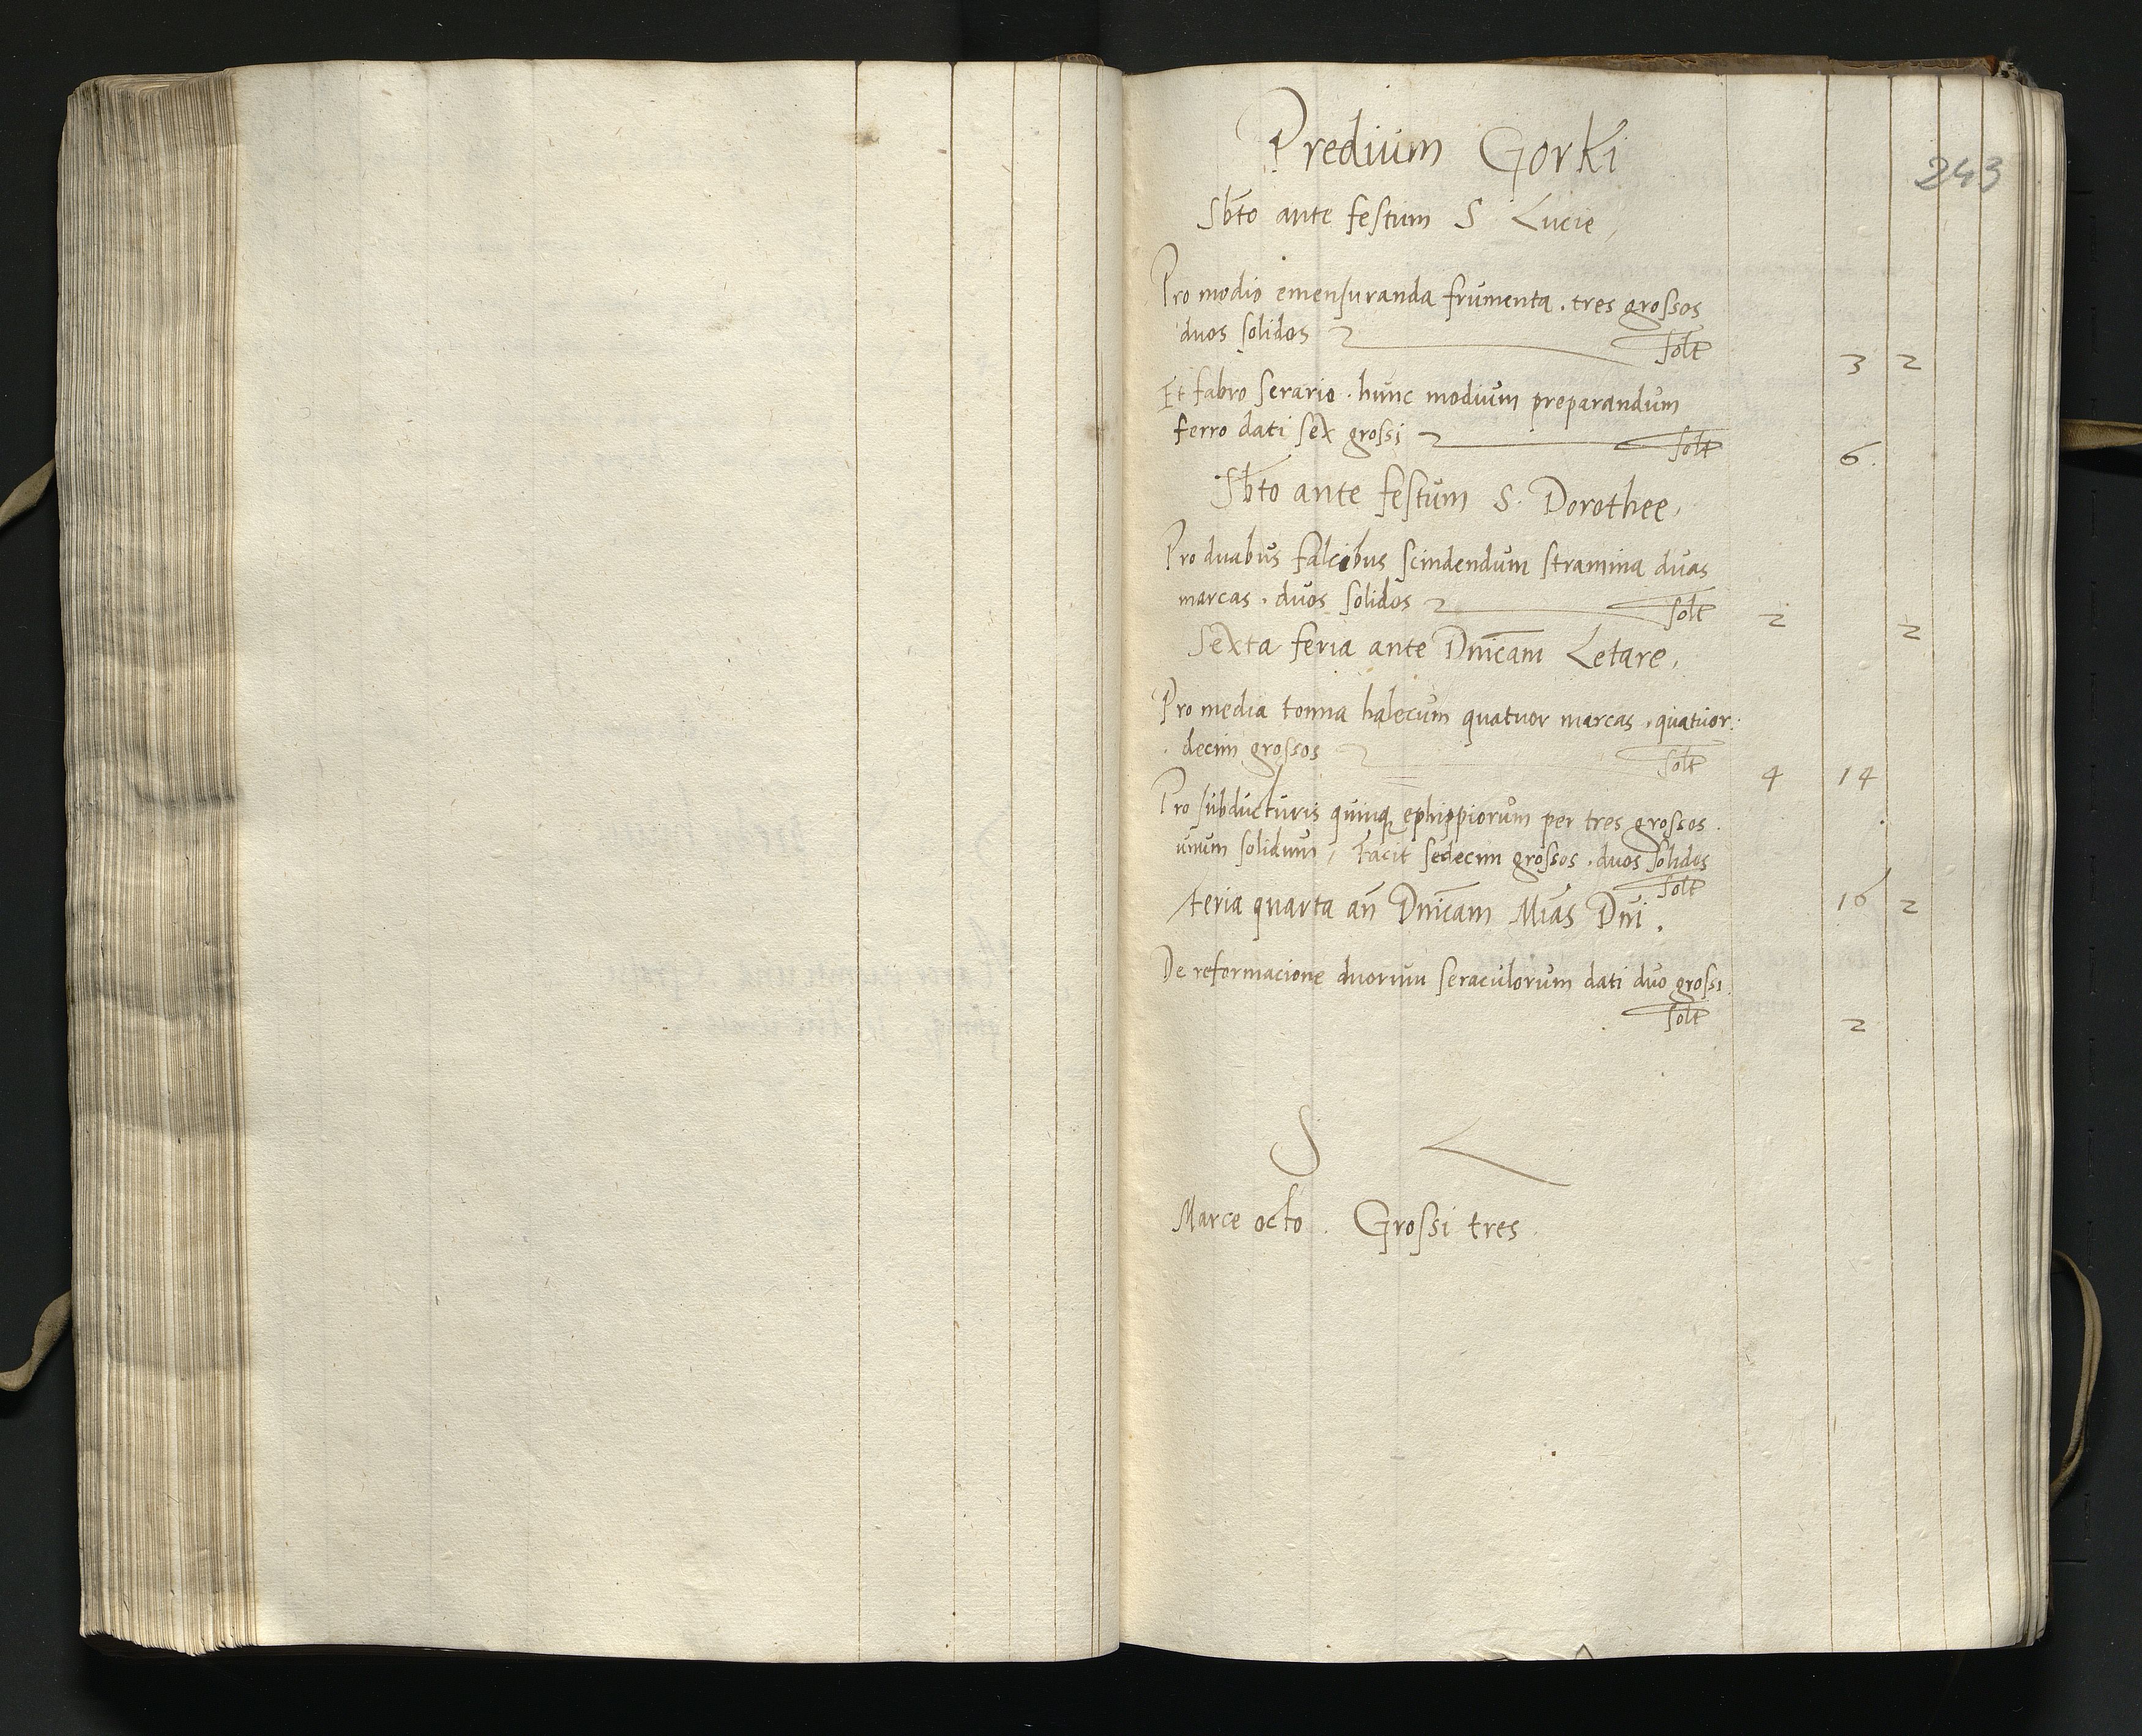 Predium Gorki
243
Sbto ante festum S Lucie
Pro modio emensuranda frumenta . tres grossos
duos solidos solt 3 2
Et fabro serario . hunc modium preparandum
ferro dati sex grossi solt 6.
Sbto ante festum S. Dorothee,
Pro duabus falcibus scindendum stramina duas
marcas . duos solidos solt 2 2
Sexta feria ante Dnicam Letare,
Pro media tonna halecum quatuor marcas . quatuor:
decim grossos solt 4 14
Pro subducturis quinq ephippiorum per tres grossos .
unum solidum, facit sedecim grossos . duos solidos
solt 16 2
feria quarta an Dnicam Mias Dni .
De reformacione duorum seraculorum dati duo grossi.
solt 2
S
Marce octo . Grossi tres .